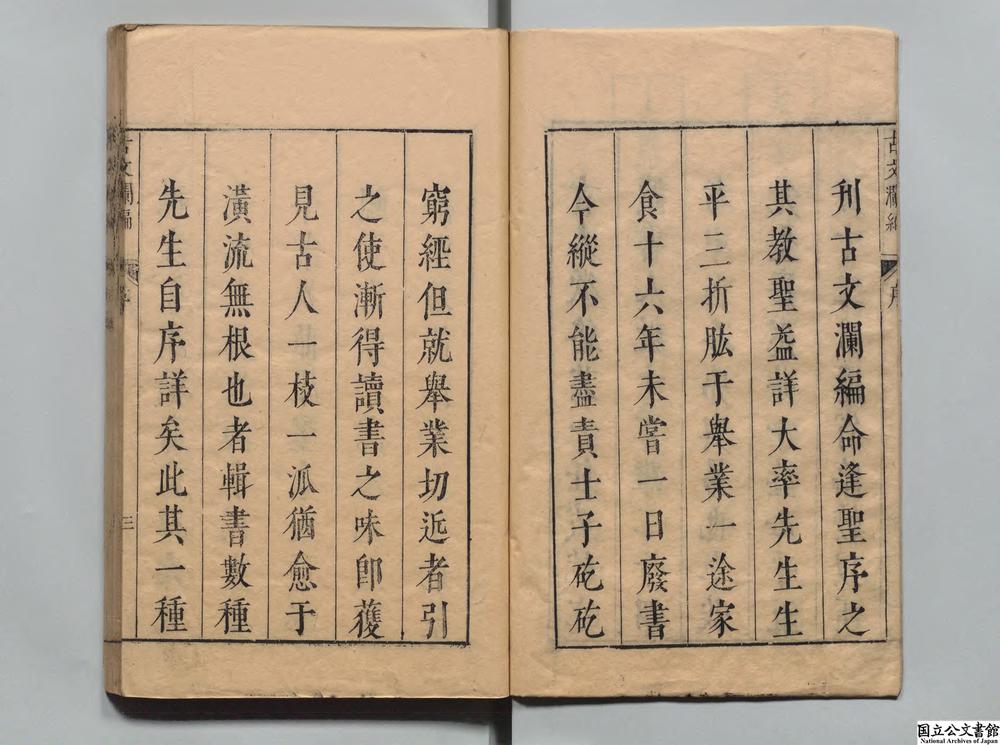 古文瀾編
序
刋古文瀾編命逢聖序之
其教聖益詳大率先生生
平三折肱于舉業一途家
食十六年未嘗一日廢書
今縱不能盡責士子矻矻
窮經但就舉業切近者引
之使漸得讀書之味卽獲
見古人一枝一泒猶愈于
潢流無根也者輯書數種
先生自序詳矣此其一種
古文瀾編
序
三
国立公文書館
National Archives of Japan